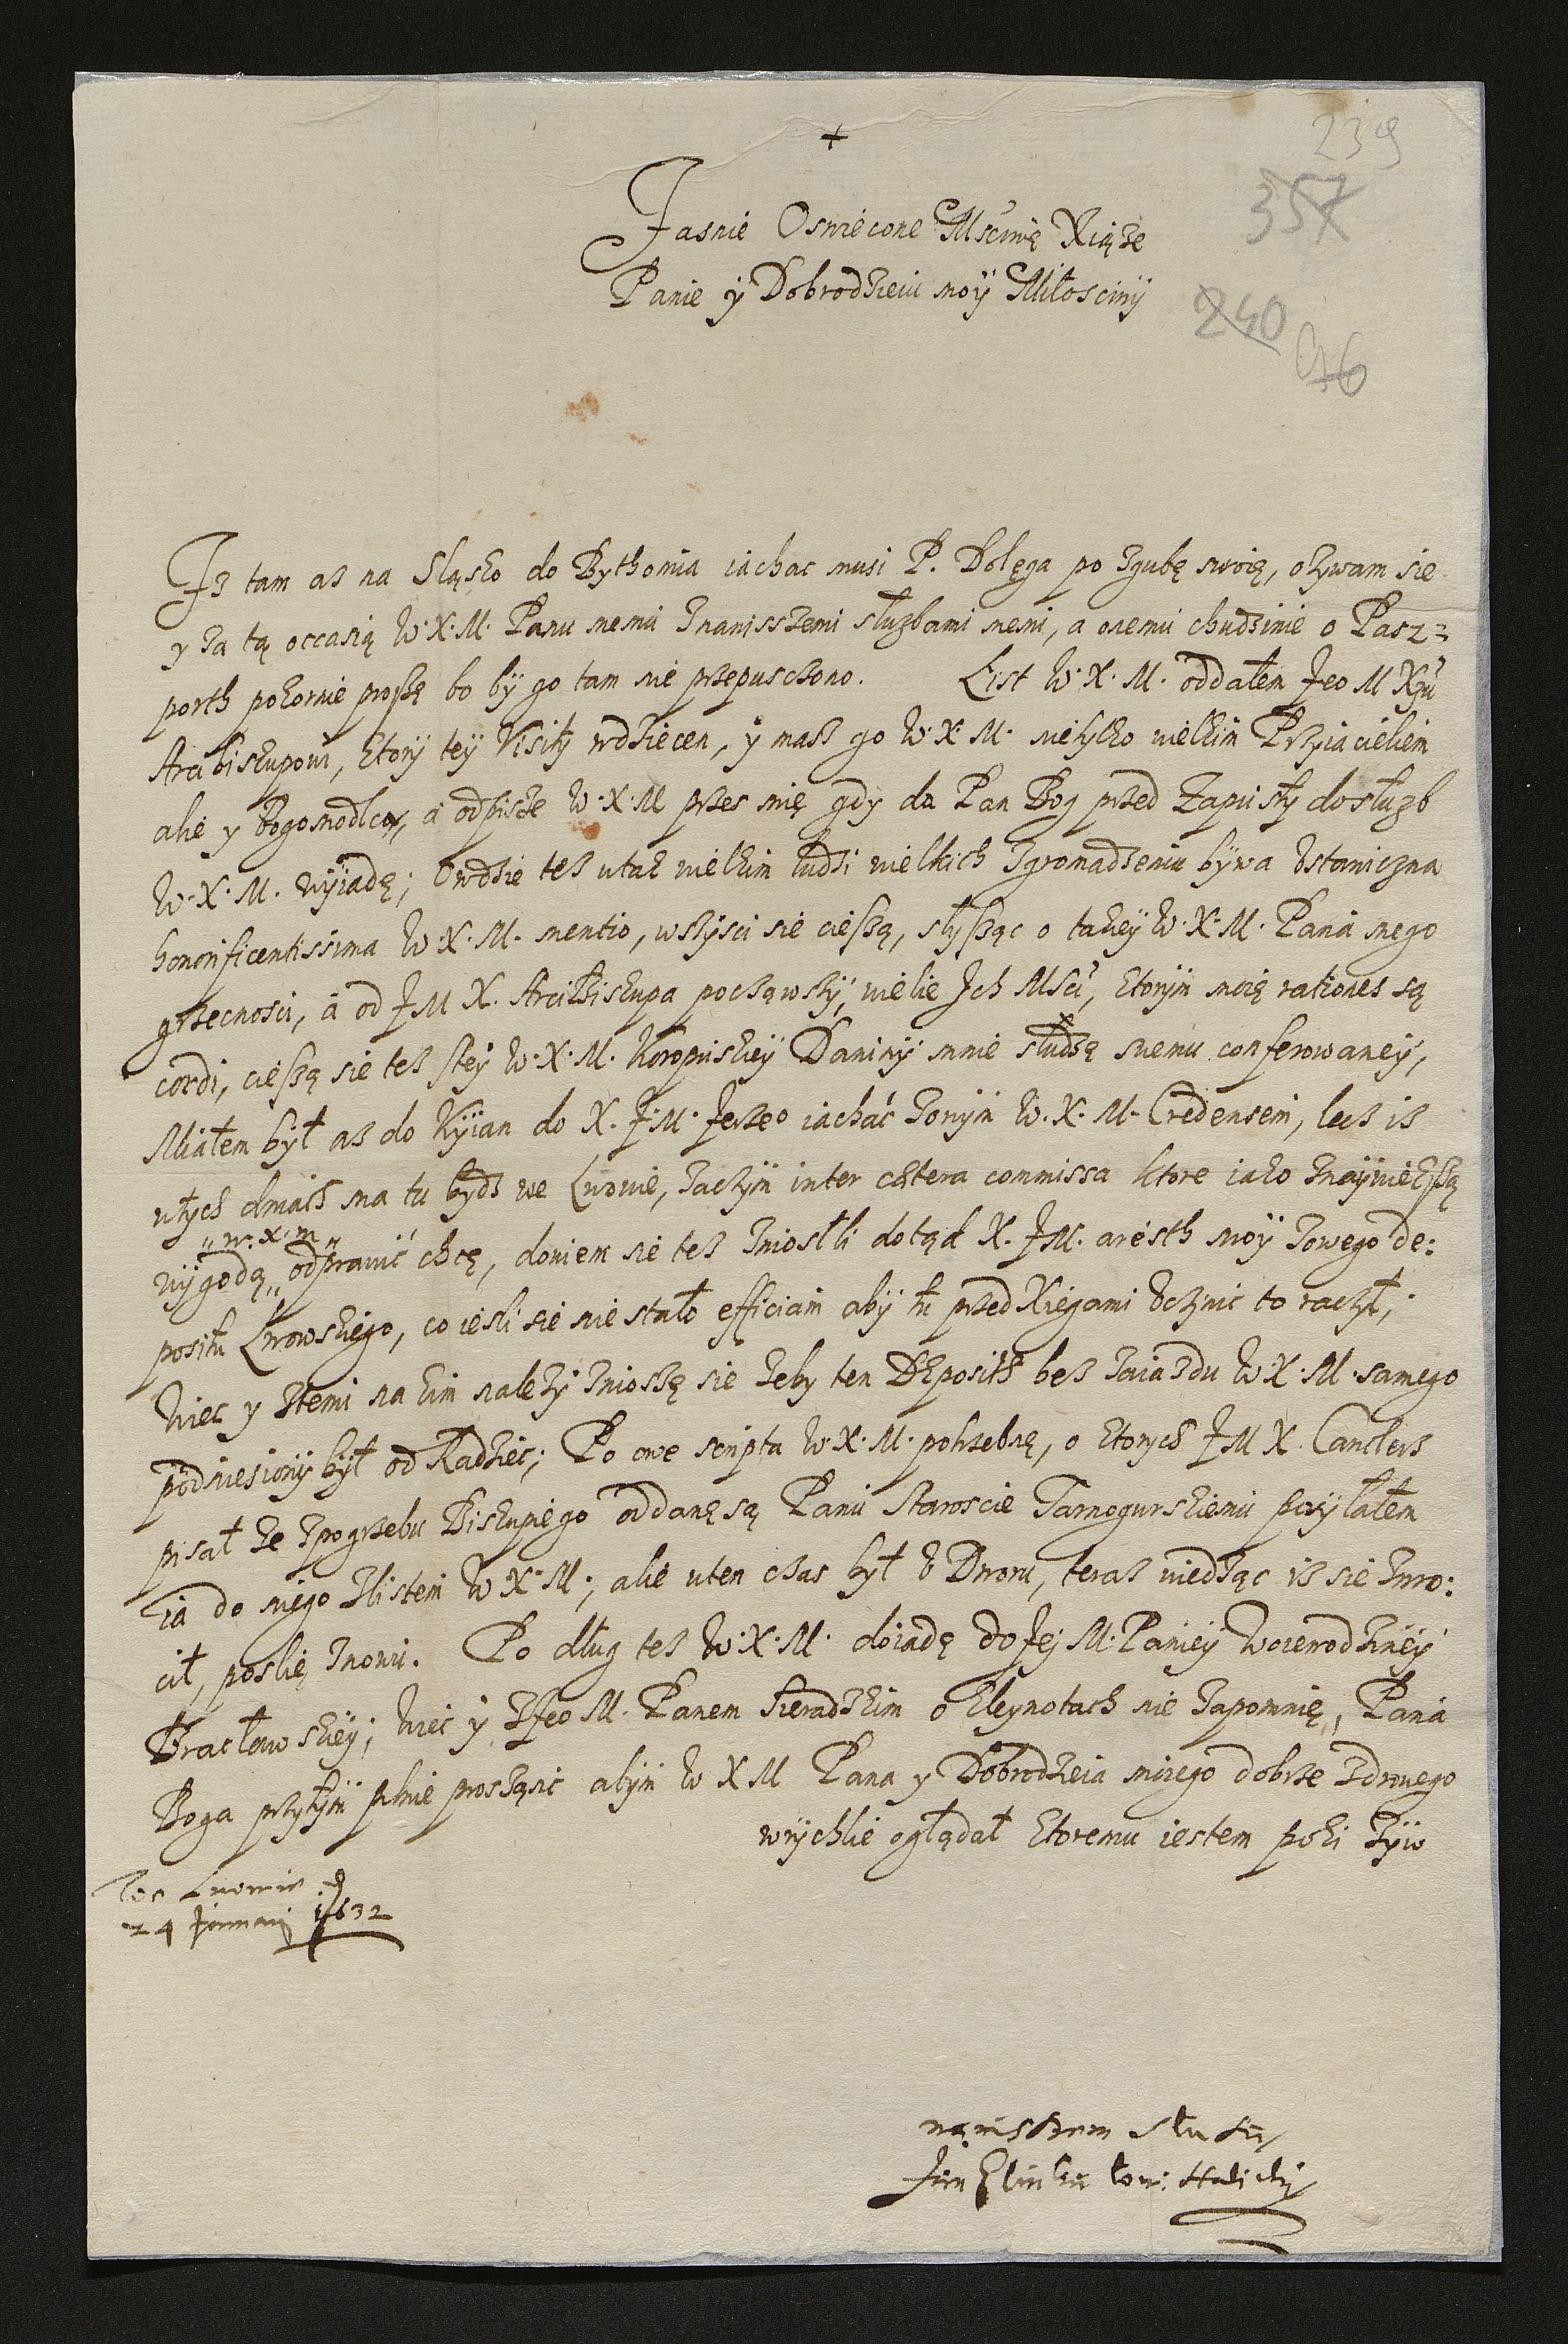 +
239
357
240
Jasnie Oswiecone Mściwę Xiąże
Panie ÿ Dobrodzieiu moÿ Miłosciwÿ
Iż tam aż na Sląsko do Bythomia iachac musi P. Dolęga po zgubę swoię, ozÿwam się
y za tą occasią W. X. M. Panu memu znanisszemi służbami memi, a onemu chudzinie o Pasz=
porth pokornie proszę bo bÿ go tam nie przepusczono. List W. X. M. oddałem Jeo M Xżu
Arcibiskupowi, ktorÿ teÿ Visitÿ wdziecen, ÿ masz go W. X. M. nietÿlko wielkim Przÿiacielem
ale y Bogomodlcą, a odpisze W. X. M przez mię gdy da Pan Bog przed Zapustÿ dosłużb
W. X. M. wÿiadę; Owdzie tesz utak wielkim ludzi wielkich zgromadzeniu bÿwa Ustawiczna
honorificentissima W. X. M. mentio, wszÿsci się cieszą, słÿsząc o takieÿ W. X. M. Pana mego
grzecnosci, a od JM X. Arcibiskupa pocżąwszÿ, wielie Ich Msci, ktorÿm moię rationes są
cordi, cieszą się tesz steÿ W. X. M. Koropuskieÿ Daninÿ mnie słudzę swemu conferowaneÿ,
Miałem bÿł asz do Kÿian do X. J. M. Jerze° iachać zonÿm W. X. M. Credensem, lecz isz
utÿch dniach ma tu bÿdz we Lwowie, zaczÿm inter cætera commissa ktore iako znaÿwiekszą
„ w. x. m „
wÿgodą „ odprawić chcę, dowiem się tesz zniosłli dotąd X. JM. aresth moÿ zowego de:
positu Lwowskiego, co iesli się nie stało efficiam abÿ tu przed Xięgami Uczÿnić to raczÿł,
Wiec y ztemi na kim należÿ zniosżę się żeby ten Deposith besz ziazdu W. X. M. samego
podniesionÿ bÿł od Radziec; Po owe scripta W. X. M. potrzebnę, o ktorÿch JM X. Canclerz
pisał że zpogrzebu Biskupiego oddanę są Panu Staroscie Tarnogurskiemu posÿłałem
ia do niego zlistem W. X. M.; ale uten cżas bÿł U Dworu, teraz wiedząc isz się zwro:
cił, poslię znowu. Po dług tesz W. X. M. doiadę do Jej M. Panieÿ Woiewodzineÿ
Bracławskieÿ; Wiec ÿ zJeo M. Panem Sieradzkim o Kleynotach nie zapomnię, Pana
Boga przÿtÿm pilnie proszący abÿm W X M Pana y Dobrodzieia mojego dobrze zdrowego
wrÿchlie oglądał ktoremu iestem poki żÿw
We Lwowie
24 Januarij 1632
naniszszem sługą
Jan łow: Halicki